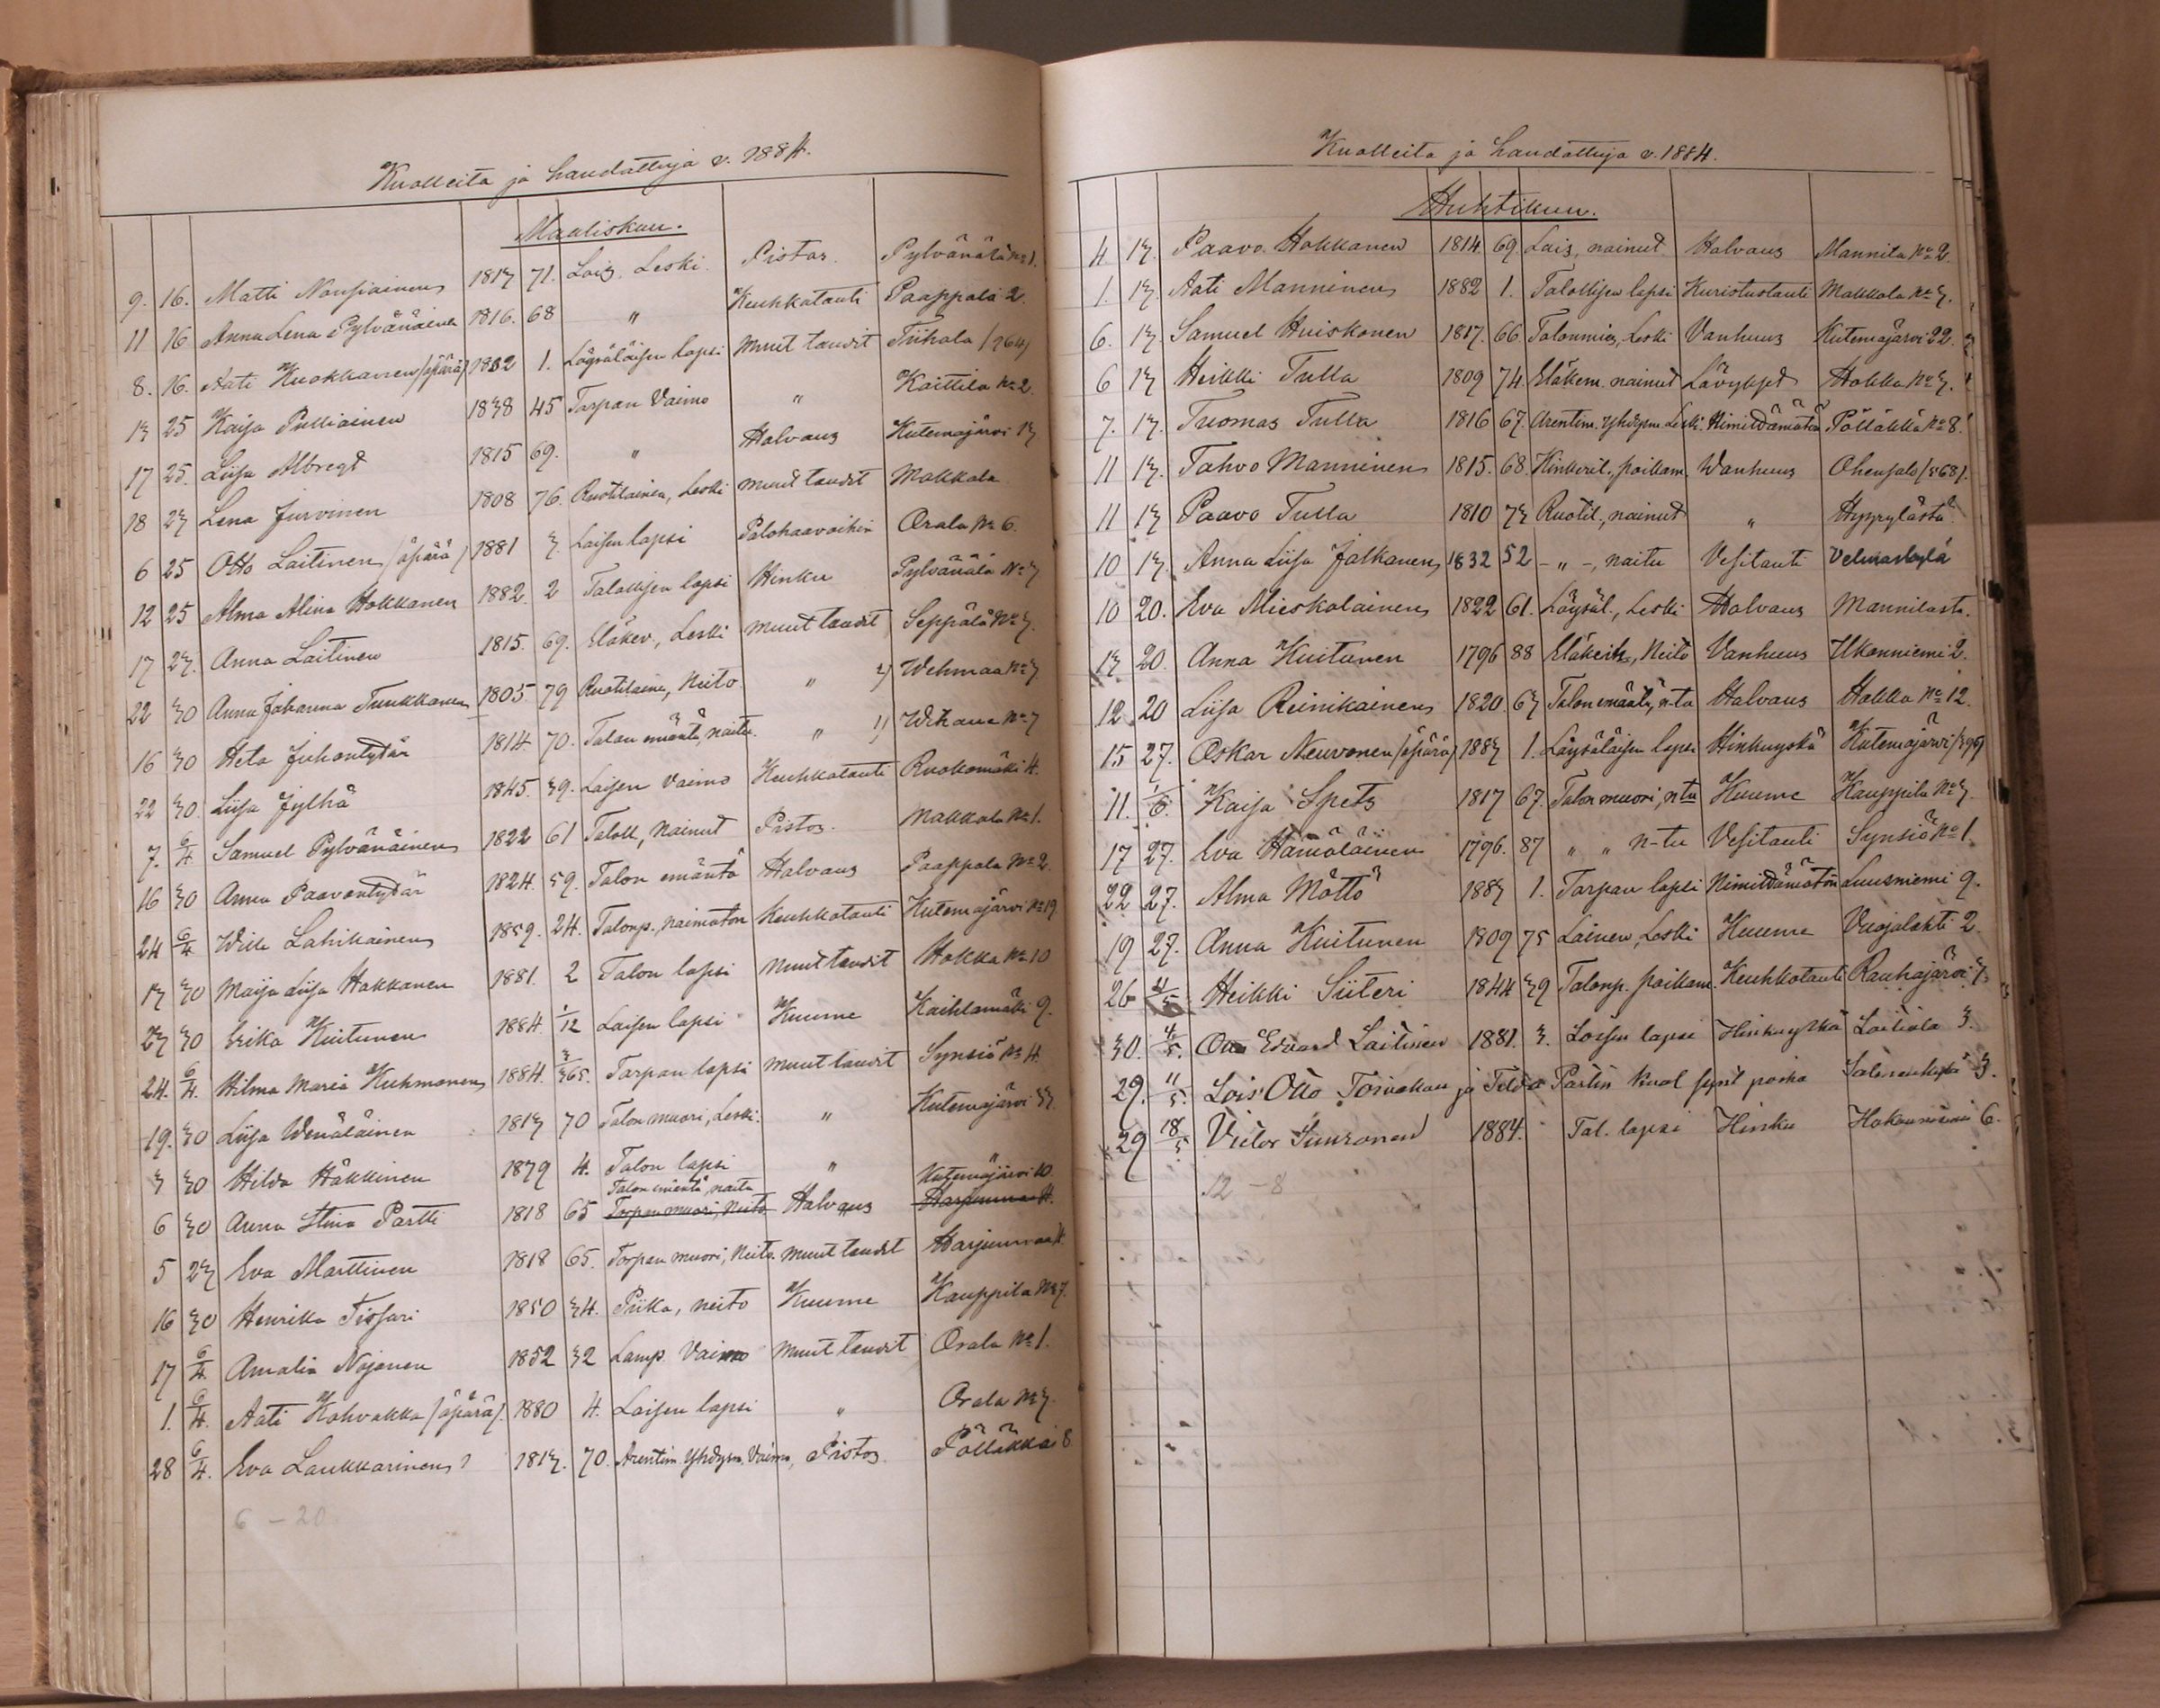 Kuolleita ja haudattuja v. 1884.
Maaliskuu.
9. 16. Matti Nousiainen 1813 71. Lois. Leski. Pistos. Pylvänälä No 1.
11 16 Anna Lena Pylvänäinen 1816. 68 " Keuhkotauti Paappala 2.
8. 16. Aati Kuokkanen (äpärä) 1882 1. Löysäläisen lapsi muut taudit Tiihola (264)
13 25 Kaisa Pulliainen 1838 45 Torpan Vaimo " Koittila No 2.
17 25. Liisa Albregt 1815 69. " Halvaus Kutemajärvi 13
18 23 Lena Jurvinen 1808 76. Ruotilainen, Leski muut taudit Makkola
6 25 Otto Laitinen (äpärä) 1881 3. Loisen lapsi Palohaavoihin Orala No 6.
12 25 Alma Alina Hokkanen 1882. 2 Talollisen lapsi Hinku Pylvänälä No 3
17 23. Anna Laitinen 1815. 69. Eläkev., Leski muut taudit Seppälä No 3.
22 30 Anna Johanna Tuukkanen 1805 79 Ruotilainen, Neito " 2) Wehmaa No 3
16 30 Heta Juhontytär 1814 70. Talon emäntä, naitu. " 1) Wihava No 7
22 30. Liisa Jylhä 1845. 39. Loisen Vaimo Keuhkotauti Ruokomäki 4.
7. 6/4 Samuel Pylvänäinen 1822 61 Taloll, nainut Pistos. Makkola No 1.
16 30 Anna Paavontytär 1824. 59. Talon emäntä Halvaus Paappala No 2
24 6/4 Wille Lahikainen 1859. 24. Talonp., naimaton Keuhkotauti Kutemajärvi No 19
13 30 Maija Liisa Hokkanen 1881. 2 Talon lapsi muut taudit Hokka No 10
23 30 Erika Kuitunen 1884. 1/12 Loisen lapsi Kuume Kaihlamäki 9.
24. 6/4. Hilma Maria Kuhmonen 1884. 3/365. Torpan lapsi muut taudit Synsiö No 4.
19. 30 Liisa Wenäläinen 1813 70 Talon muori, Leski. " Kutemajärvi 33.
3 30 Hilda Häkkinen 1879 4. Talon lapsi " Kutemajärvi 10.
Talon emäntä, naitu
6 30 Anna Stina Partti 1818 65 Torpan muori, Neito Halvaus Harjunmaa 4.
5 23 Eva Marttinen 1818 65. Torpan muori, Neito. muut taudit Harjunmaa 4.
16 30 Henrika Tissari 1850 34. Piika, neito Kuume Kauppila No 7.
17 6/4. Amalia Nojonen 1852 32 Lamp. Vaimo muut taudit Orala No 1.
1. 6/4. Aati Kohvakka (äpärä) 1880 4. Loisen lapsi " Orala No 3.
28 6/4. Eva Laukkarinen 1813. 70. Arentim. Yhdysm. Vaimo, Pistos Pölläkkä 8.
6 – 20
Kuolleita ja haudattuja v. 1884.
Huhtikuu.
4. 13. Paavo Hokkanen 1814 69. Lois, nainut Halvaus Mannila No 2.
1. 13. Aati Manninen 1882 1. Talollisen lapsi Kuristustauti Makkola No 3.
6. 13. Samuel Huiskonen 1817. 66. Talonmies, Leski Vanhuus Kutemajärvi 22.
6 13 Heikki Tulla 1809 74. Eläkem. nainut Lävykset Hokka No 3.
7. 13. Tuomas Tulla 1816 67. Arentim. Yhdysm. Leski. Nimittämätön Pölläkkä No 8.
11 13. Tahvo Manninen 1815. 68. Kinkeril., poikam. Wanhuus Ohensalo (568).
11 13 Paavo Tulla 1810 73 Ruotil., nainut " Hyyrylästä
10 13. Anna Liisa Jalkanen 1832 52 – " –, naitu Vesitauti
10 20. Eva Mieskolainen 1822 61. Löysäl., Leski Halvaus Mannilasta.
13 20. Anna Kuitunen 1796 88 Eläkeih., Neito Vanhuus Ukonniemi 2.
12 20 Liisa Reinikainen 1820. 63 Talon emäntä, n-tu Halvaus Hokka No 12.
15 27. Oskar Neuvonen (äpärä) 1883 1. Löysäläisen lapsi Hinkuyskä Kutemajärvi (396)
11. 1/6. Kaisa Spets 1817 67. Talon muori, n-tu Kuume Kauppila No 3.
17 27. Eva Hämäläinen 1796. 87 " " n-tu Vesitauti Synsiö No 1.
22 27. Alma Möttö 1883 1. Torpan lapsi Nimittämätön Luusniemi 9.
19 27. Anna Kuitunen 1809 75 Loinen, Leski Kuume Vuojalahti 2.
26 4/5 Heikki Siiteri 1844 39 Talonp. poikam. Keuhkotauti Rauhajärvi 3.
30. 4/5. Otto Edvard Laitinen 1881. 3. Loisen lapsi Hinkuyskä Loitiala 3.
29. 11/5. Lois Otto Toivakan ja Tilda Partin kuol. synt. poika 3.
29 18/5 Victor Suuronen 1884. Tal. lapsi Hinku Hokanniemi 6.
12 – 8